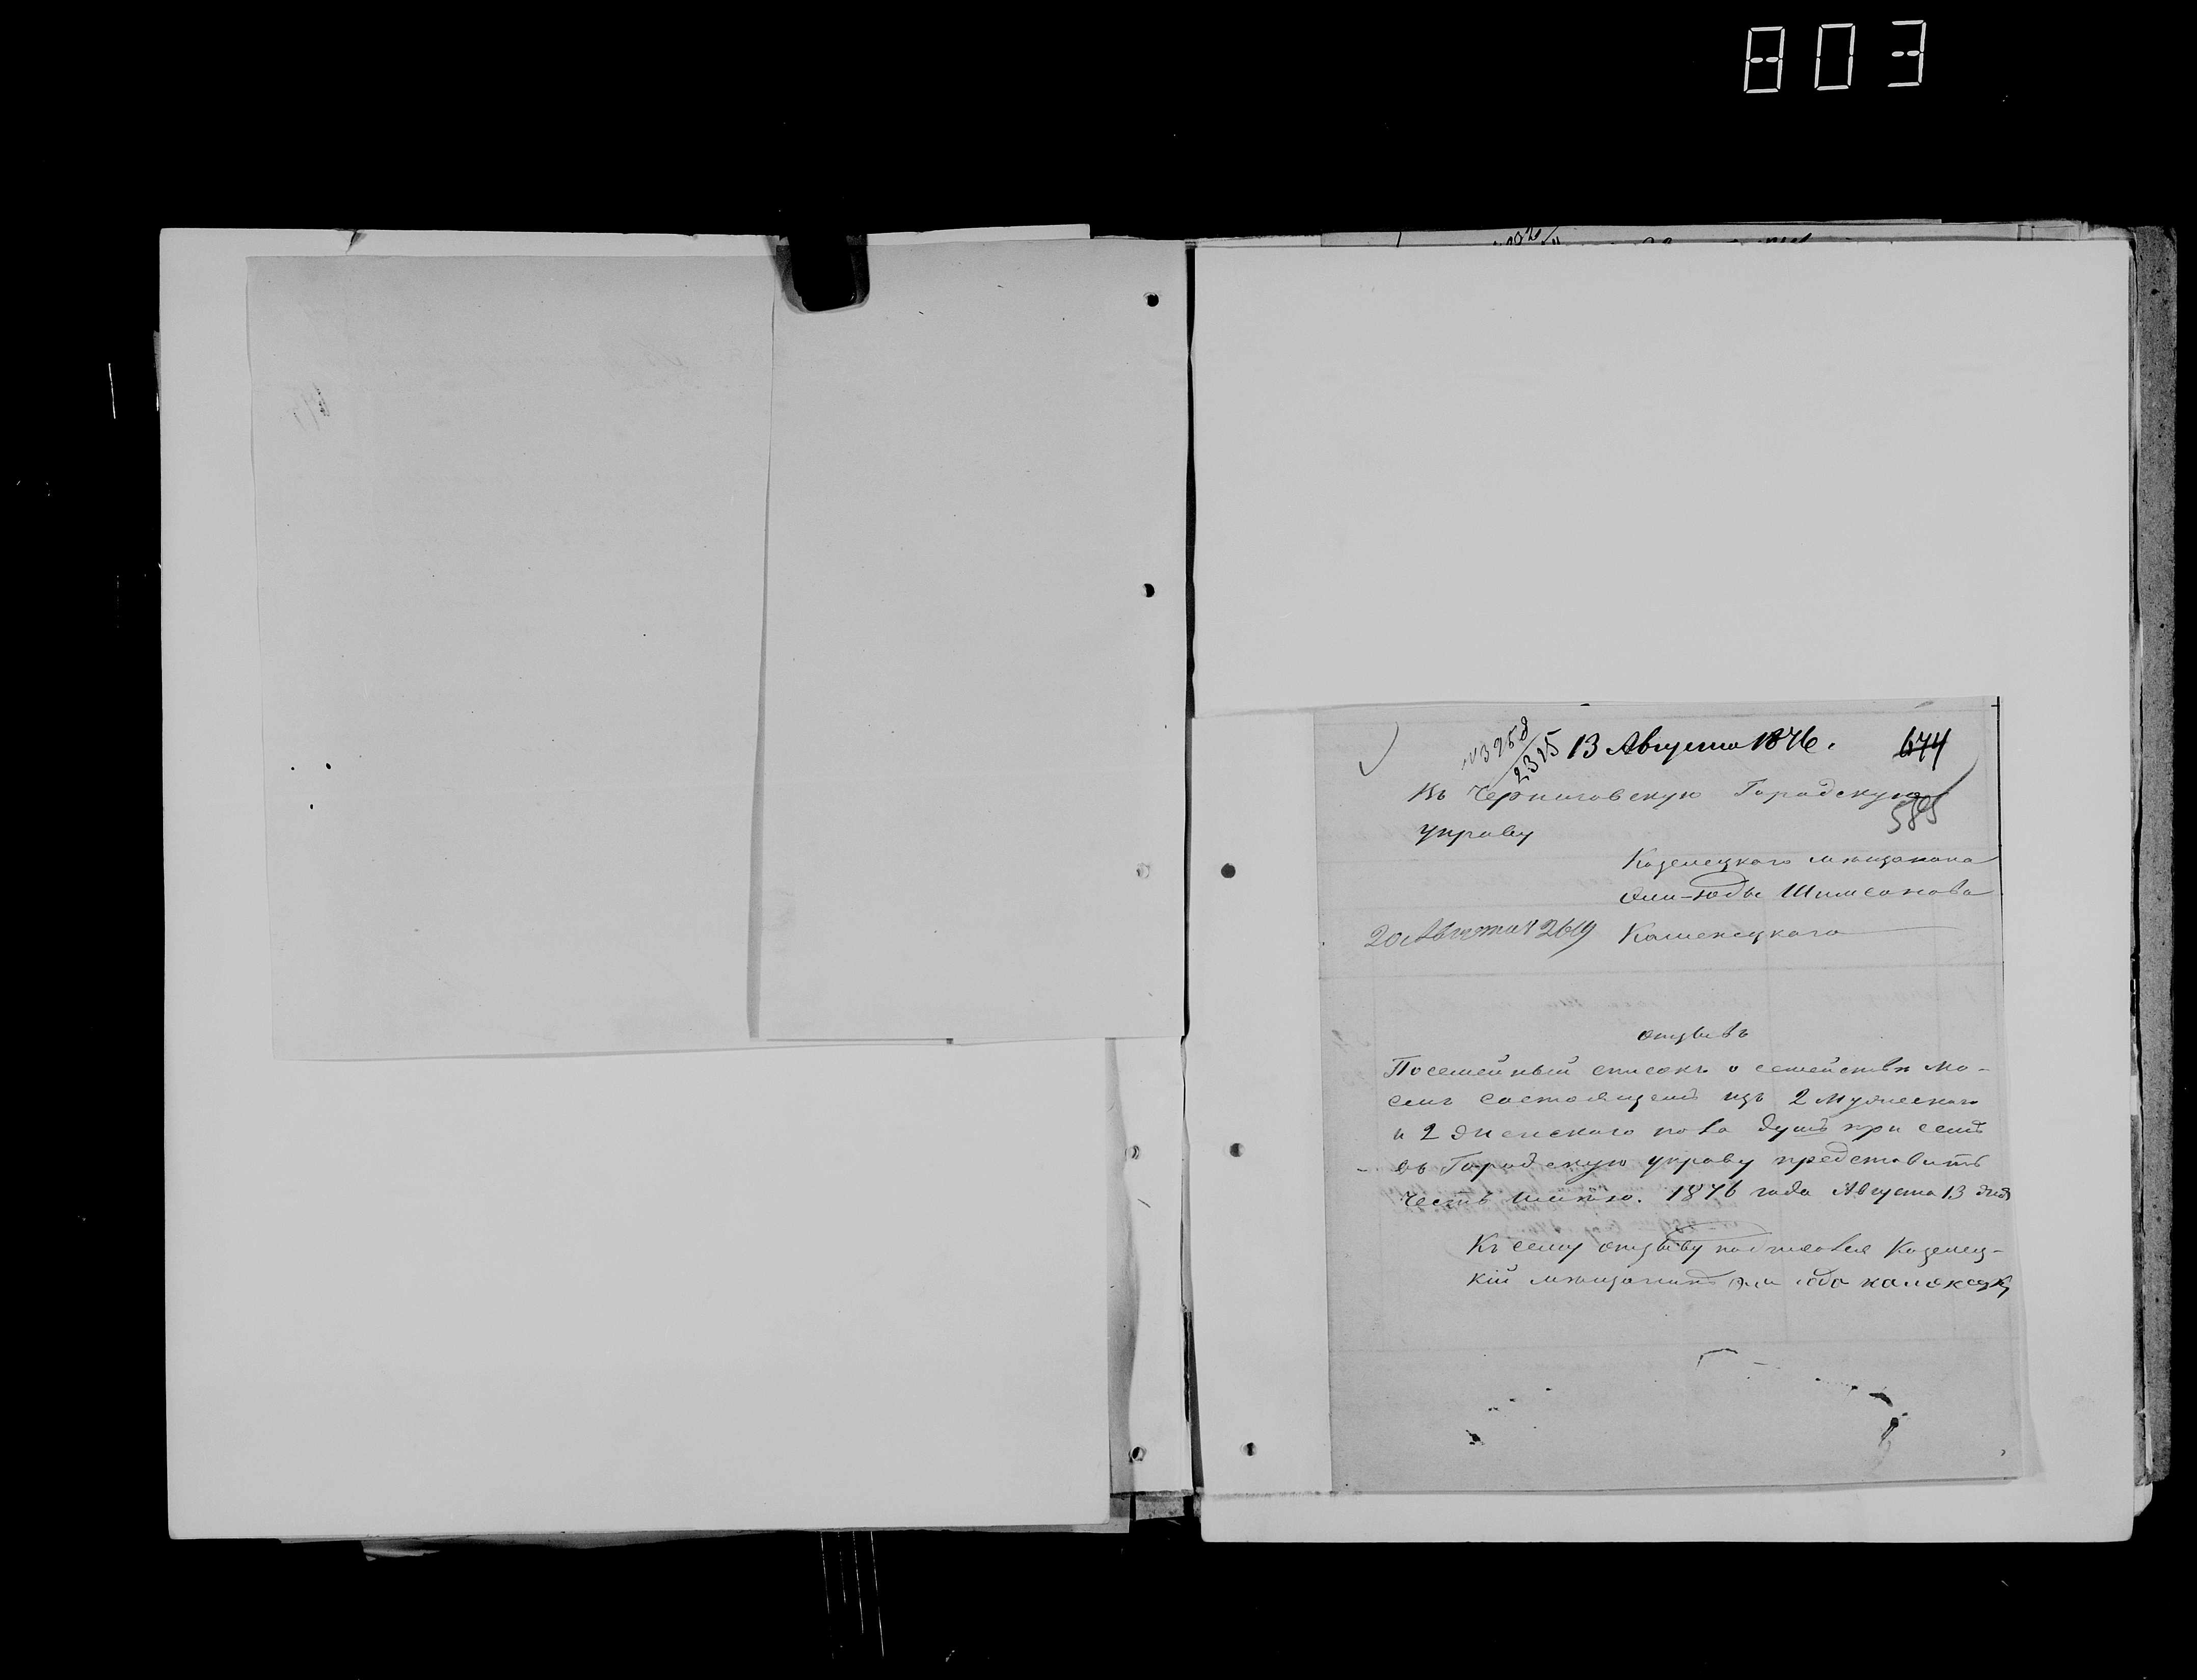 803
№3258
2325 13 Августа 1876.
674
Въ Черниговскую Городскую
585
управу
Козелецкаго мѣщанина
Эли-Юды Шимсонова
20 Августа № 2619 Каменецкаго
отзывъ
Посемейный списокъ о семействѣ мо-
емъ состоящемъ изъ 2 мужескаго
и 2 женскаго пола душъ при семъ
въ Городскую управу представить
честь имѣю. 1876 года Августа 13 дня
Къ сему отзыву Козелец-
кій мѣщанинъ Эли юда